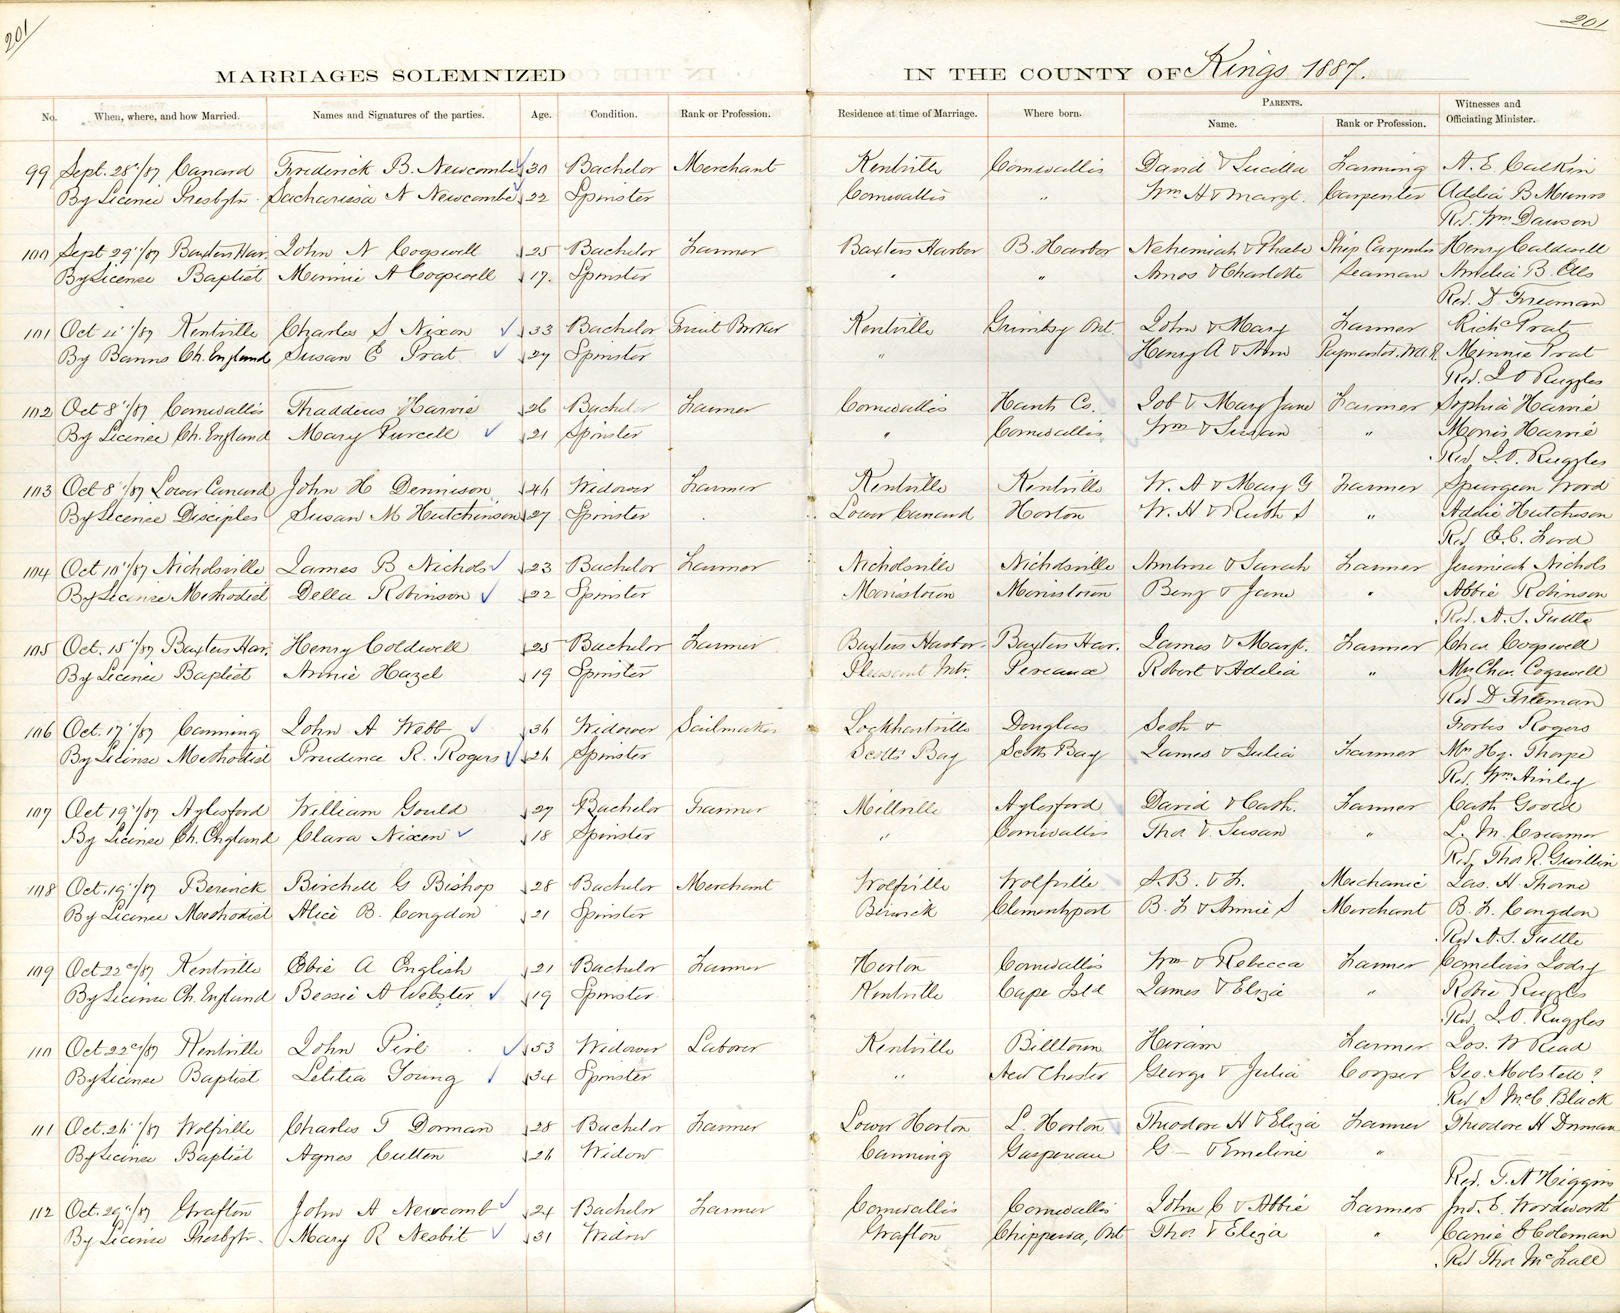 201
201
MARRIAGES SOLEMNIZED IN THE COUNTY OF Kings 1887.
No. When, where, and how Married. Names and Signatures of the parties. Age. Condition. Rank or Profession. Residence at time of Marriage. Where born. PARENTS. Name. Rank or Profession. Witnesses and Officiating Minister.
99 Sept. 28"/87 Canard Frederick B. Newcombe 30 Bachelor Merchant Kentville Cornwallis David & Lucilla Farming A. E. Calkin
By Licence Presbytn. Sachariesa N Newcombe 22 Spinster Cornwallis " Wm H & Margt. Carpenter Adelia B Munro
Rev. Wm Dawson
100 Sept 29"/87 Baxters Har. John N Cogswell 25 Bachelor Farmer Baxters Harbor B. Harbor Nehemiah & Phebe Ship Carpenter Henry Caldwell
By License Baptist Minnie A Cogswell 17. Spinster " " Amos & Charlotte Seaman Amelia B. Ells
Rev. D Freeman
101 Oct 4"/87 Kentville Charles S Nixon 33 Bachelor Fruit Broker Kentville Grimsby Ont. John & Mary Farmer Richd Prat
By Banns Ch. England Susan E Prat 27 Spinster " Henry A & Ann Paymaster. W.A.R. Minnie Prat
Rev. J O Ruggles
102 Oct 8"/87 Cornwallis Thaddeus Harvie 26 Bachelor Farmer Cornwallis Hants Co. Job & Mary Jane Farmer Sophia Harvie
By License Ch. England Mary Purcell 21 Spinster " Cornwallis Wm & Susan " Morris Harvie
Rev J. O. Ruggles
103 Oct 8"/87 Lower Canard John H Dennison 46 Widower Farmer Kentville Kentville W. A & Mary G Farmer Spurgeon Word
By License Disciples Susan M Hutchinson 27 Spinster Lower Canard Horton W. H & Ruth S " Addie Hutchison
Rev E. C. Ford
104 Oct 10"/87 Nicholsville James B Nichols 23 Bachelor Farmer Nicholsville Nicholsville Ambrose & Sarah Farmer Jeremiah Nichols
By License Methodist Della Robinson 22 Spinster Morristown Morristown Benj & Jane " Abbie Robinson
Rev. A. S. Tuttle
105 Oct. 15"/87 Baxters Har. Henry Coldwell 25 Bachelor Farmer Baxters Harbor. Baxters Har. James & Margt. Farmer Chas Cogswell
By License Baptist Annie Hazel 19 Spinster Pleasant Mtn. Pereaux Robert & Adelia " Mrs Chas. Cogswell
Rev D Freeman
106 Oct. 17"/87 Canning John A Webb 36 Widower Sailmaker Lockhartville Douglas Seth & Forbes Rogers
By License Methodist Prudence R. Rogers 26 Spinster Scotts Bay Scotts Bay James & Julia Farmer Mrs Hy. Thorpe
Rev. Wm Ainley
107 Oct 19"/87 Aylesford William Gould 27 Bachelor Farmer Millville Aylesford David & Cath. Farmer Cath Goold
By License Ch. England Clara Nixen 18 Spinster " Cornwallis Thos & Susan " L. M. Creamer
Rev. Thos R. Gwillim
108 Oct. 19"/87 Berwick Birchell G Bishop 28 Bachelor Merchant Wolfville Wolfville S. B. & F. Mechanic Jas. H. Thorne
By License Methodist Alice B. Congdon 21 Spinster Berwick Clementsport B. F & Annie S Merchant B. F. Congdon
Rev A. S. Tuttle
109 Oct 22d/87 Kentville Obie A English 21 Bachelor Farmer Horton Cornwallis Wm & Rebecca Farmer Cornelius
By License Ch. England Bessie A Webster 19 Spinster Kentville Cape Isld James & Eliza " Robie Ruggles
Rev. J. O. Ruggles
110 Oct 22d/87 Kentville John Pirl 53 Widower Laborer Kentville Billtown Hiram Farmer Jos. W Read
By License Baptist Letitia Young 34 Spinster " New Chester George & Julia Cooper Geo. Molstell?
Rev S McC Black
111 Oct. 26"/87 Wolfville Charles T Dorman 28 Bachelor Farmer Lower Horton L. Horton Theodore H & Eliza Farmer Theodore H Dorman
By License Baptist Agnes Cutten 26 Widow Canning Gaspereau G— & Emeline "
Rev. T. A Higgins
112 Oct. 29"/87 Grafton John A Newcomb 24 Bachelor Farmer Cornwallis Cornwallis John C & Abbie Farmer Jno. E. Woodworth
By License Presbytn. Mary R Nesbit 31 Widow Grafton Chippewa, Ont Thos & Eliza " Carrie E Coleman
Rev Thos McFall